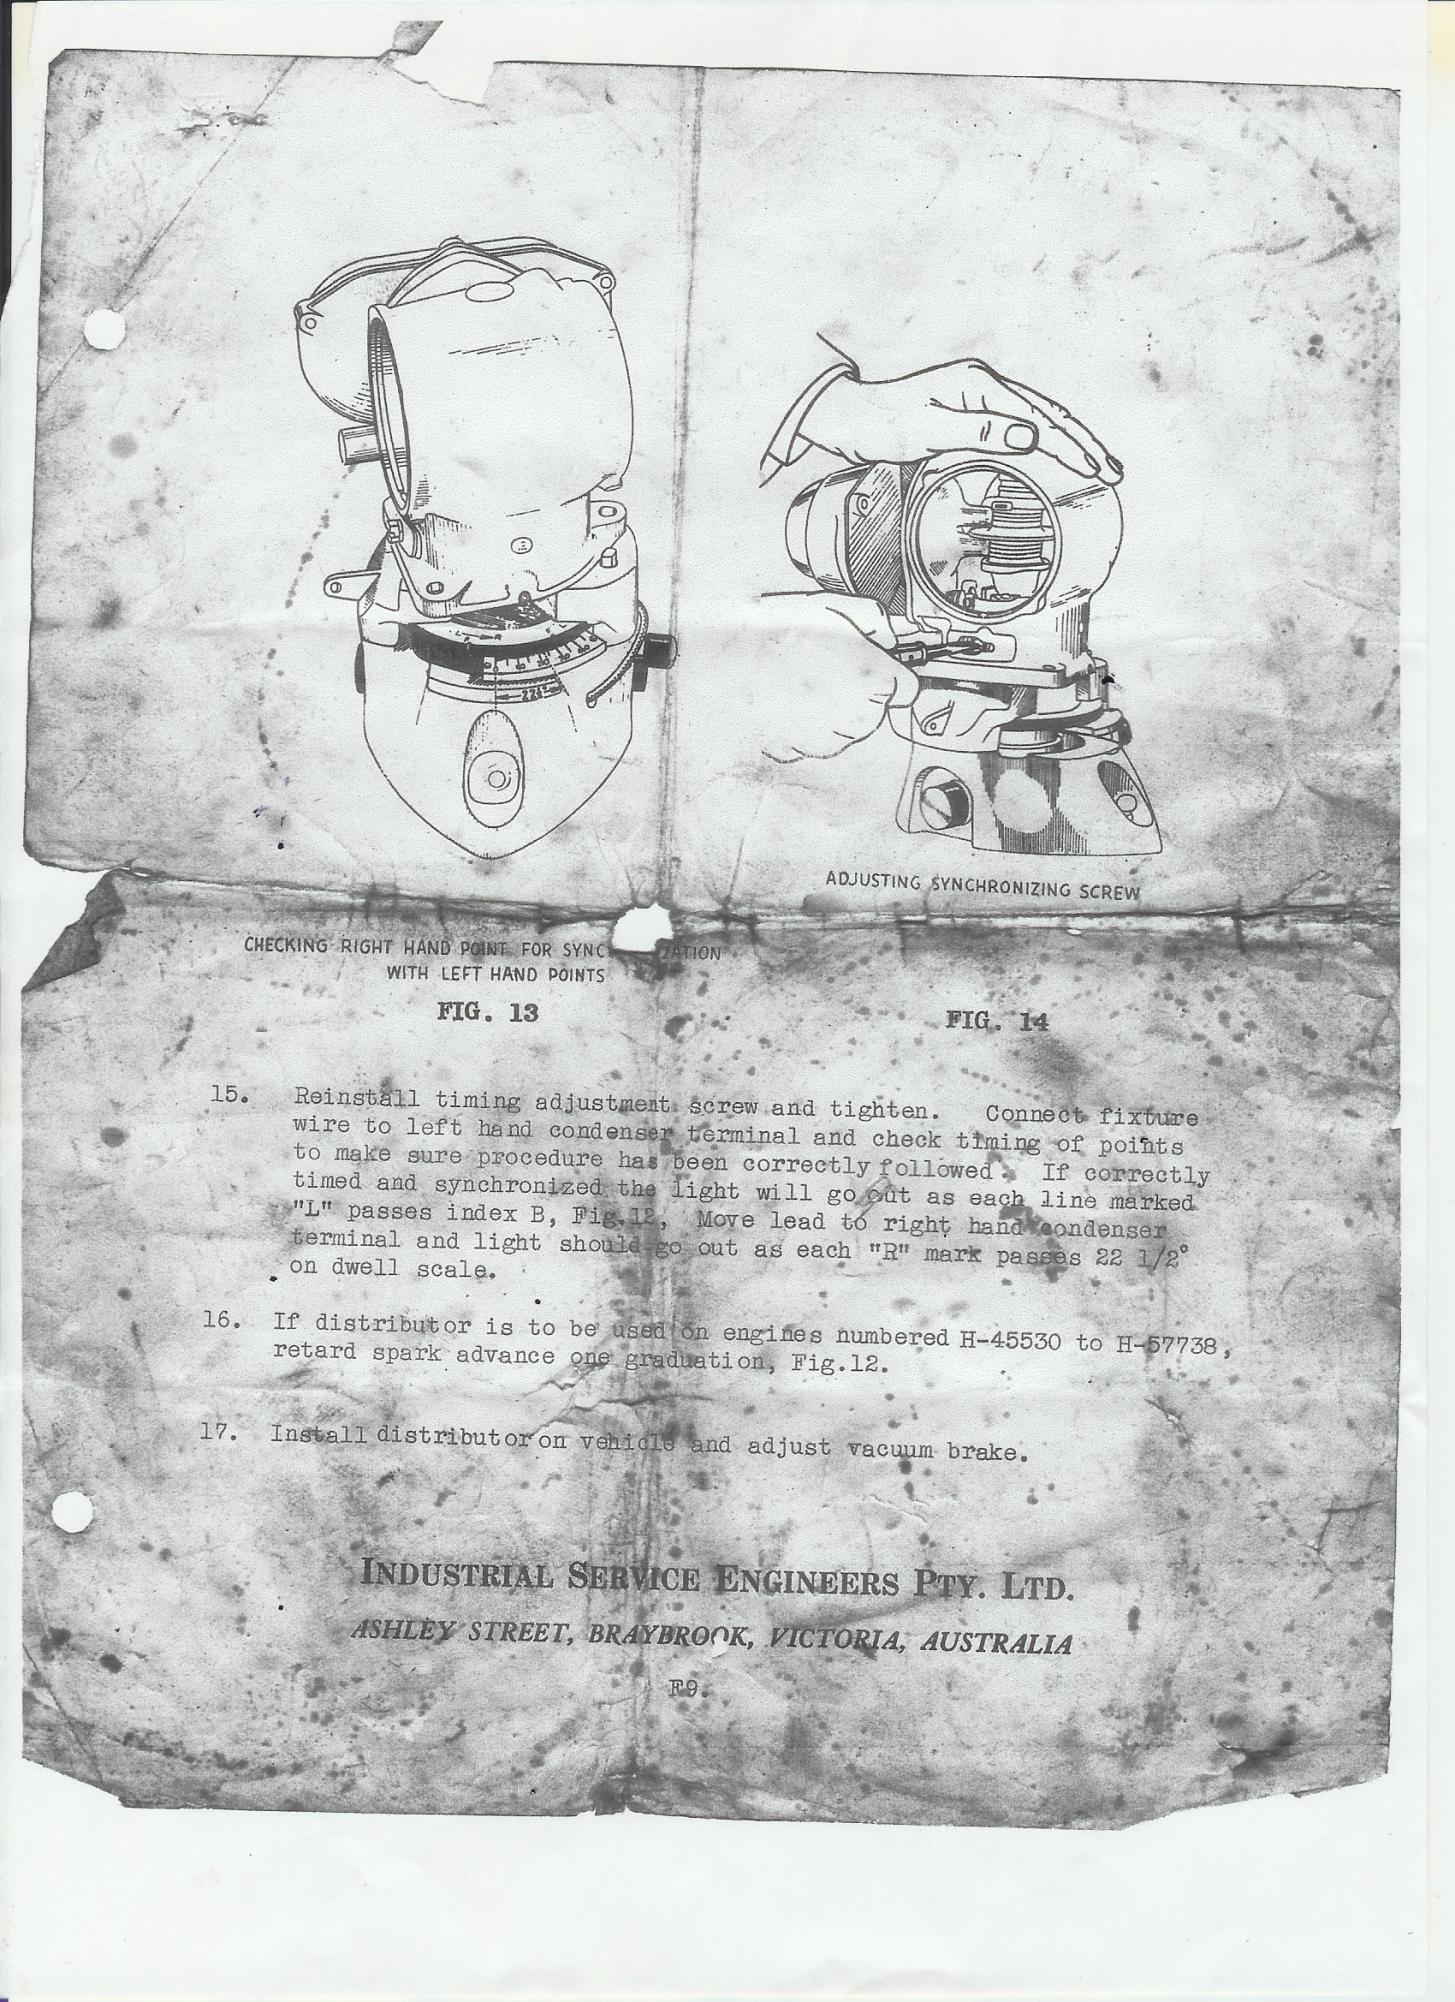 ADJUSTING SYNCHRONIZING SCREW
CHECKING RIGHT HAND POINT FOR SYNC ZATION
WITH LEFT HAND POINTS
FIG. 13
FIG. 14
15. Reinstall timing adjustment screw and tighten. Connect fixture
wire to left hand condenser terminal and check timing of points
to make sure procedure has been correctly followed. If correctly
timed and synchronized the light will go out as each line marked
"L" passes index B, Fig.12, Move lead to right hand condenser
terminal and light should go out as each "R" mark passes 22 1/2°
on dwell scale.
16. If distributor is to be used on engines numbered H-45530 to H-57738,
retard spark advance one graduation, Fig.12.
17. Install distributor on vehicle and adjust vacuum brake.
INDUSTRIAL SERVICE ENGINEERS PTY. LTD.
ASHLEY STREET, BRAYBROOK, VICTORIA, AUSTRALIA
F9.